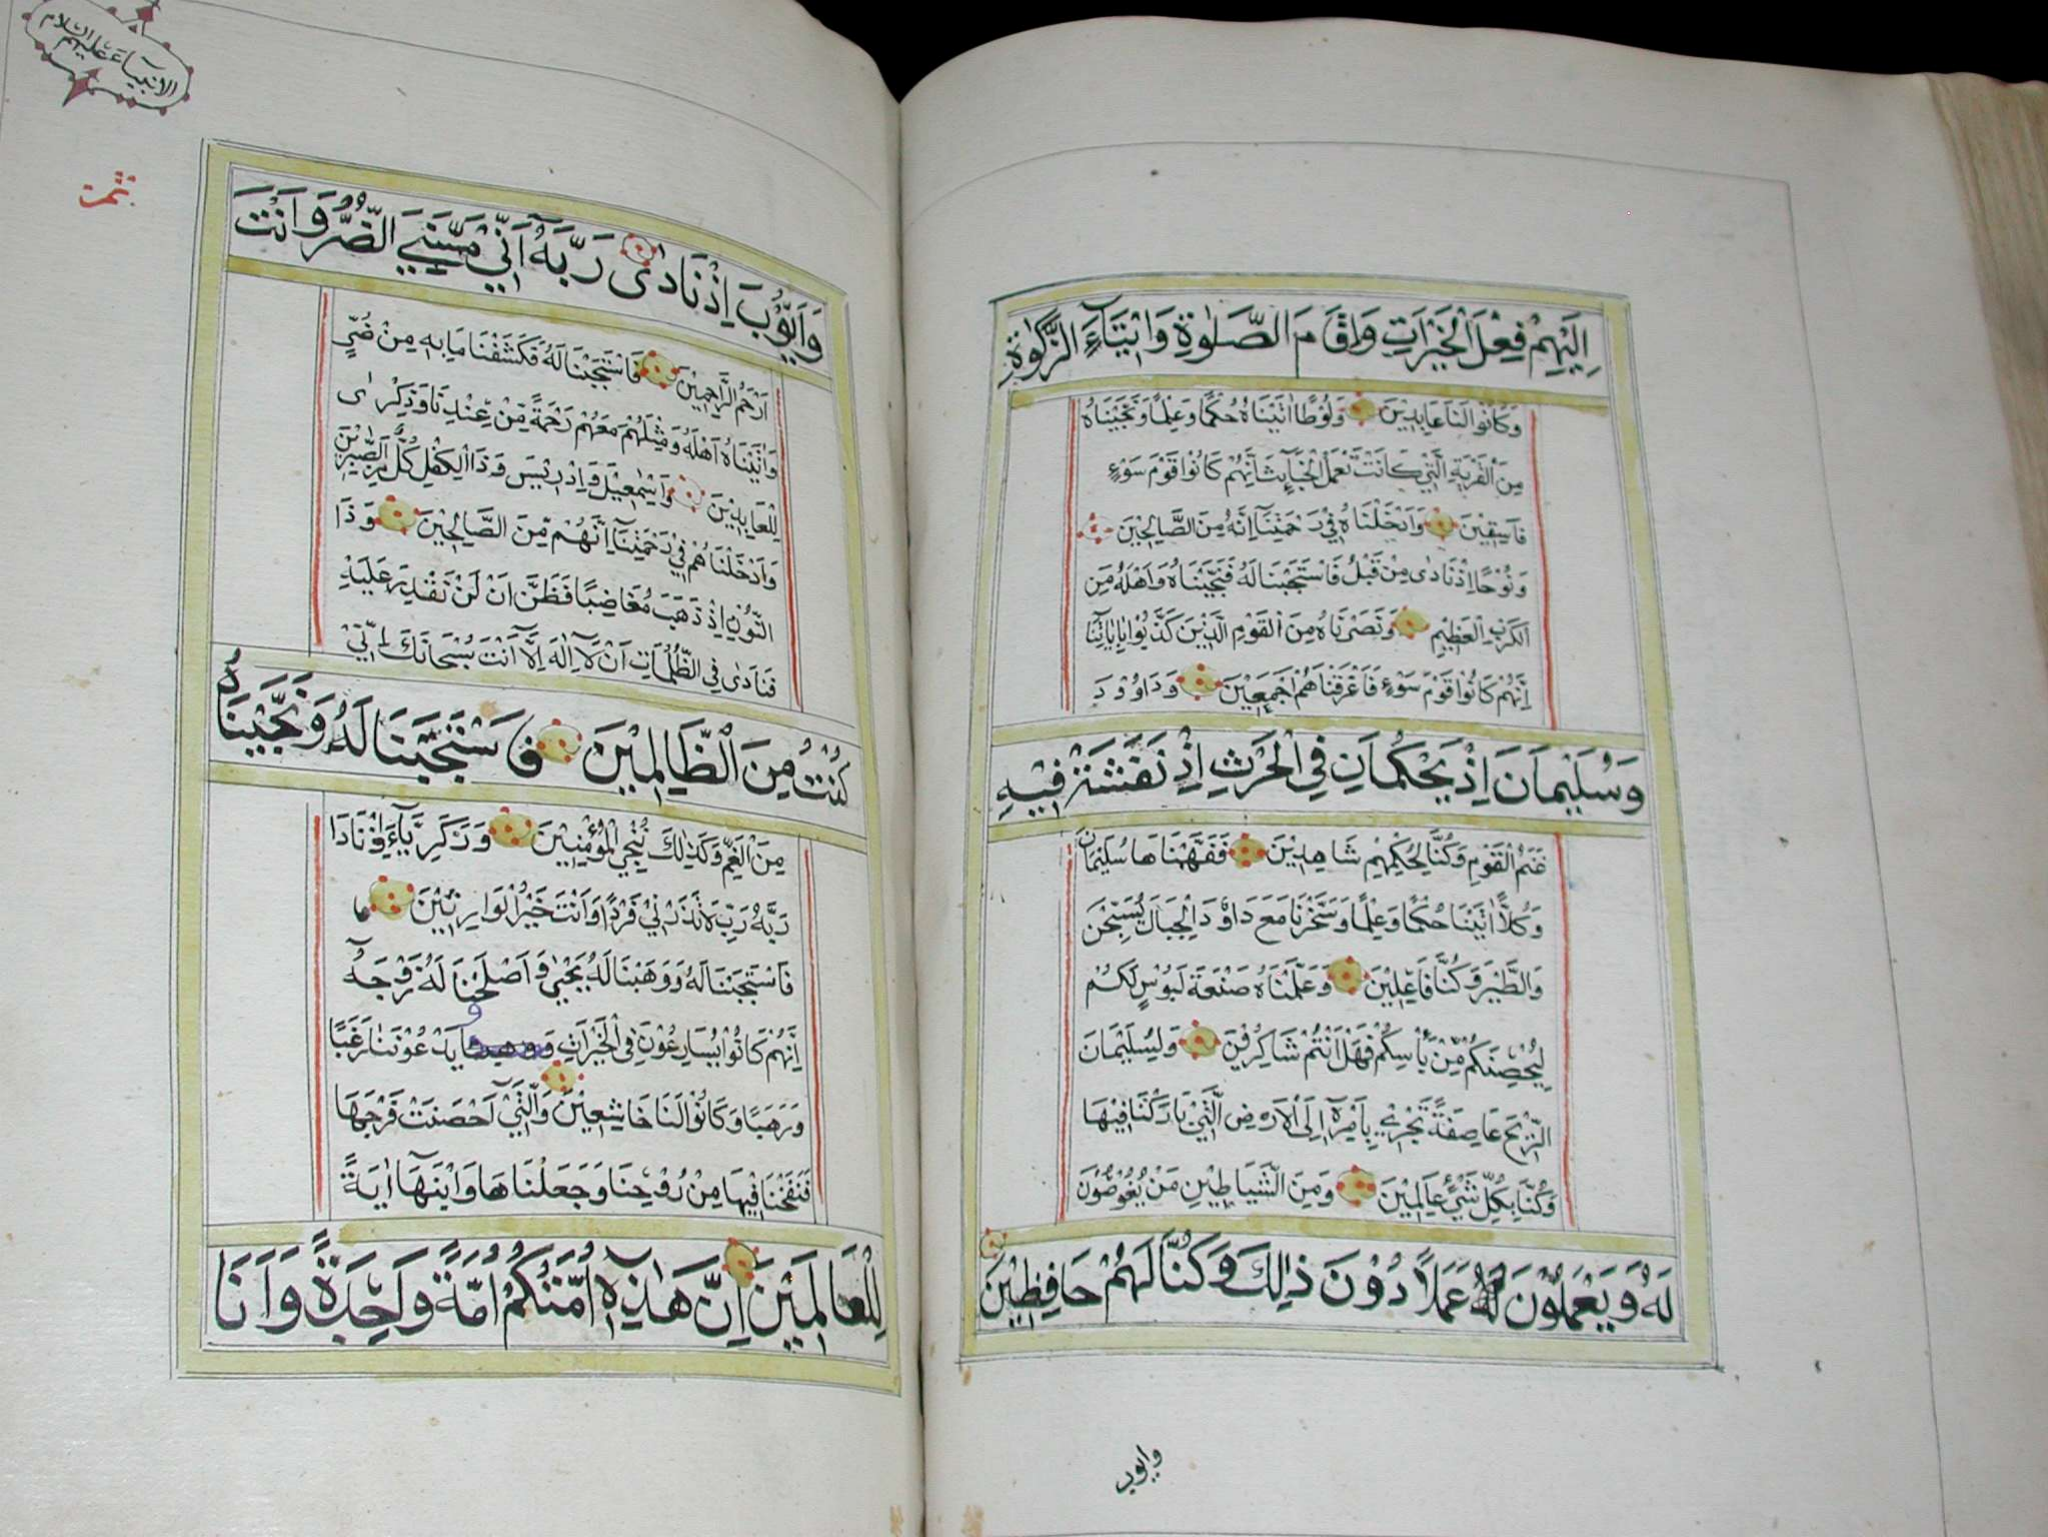 اِلَيْهِمْ فِعْلَ الْخَيْرَاتِ وَاِقَامَ الصَّلٰوةِ وَاِيْتَآءَ الزَّكٰوةِ
وَكَانُوْا لَنَا عَابِدِيْنَ وَلُوْطًا اٰتَيْنَاهُ حُكْمًا وَعِلْمًا وَنَجَّيْنَاهُ
مِنَ الْقَرْيَةِ الَّتِيْ كَانَتْ تَعْمَلُ الْخَبَآئِثَ اِنَّهُمْ كَانُوْا قَوْمَ سَوْءٍ
فَاسِقِيْنَ وَاَدْخَلْنَاهُ فِيْ رَحْمَتِنَآ اِنَّهُ مِنَ الصَّالِحِيْنَ
وَنُوْحًا اِذْ نَادٰى مِنْ قَبْلُ فَاسْتَجَبْنَا لَهُ فَنَجَّيْنَاهُ وَاَهْلَهُ مِنَ
الْكَرْبِ الْعَظِيْمِ وَنَصَرْنَاهُ مِنَ الْقَوْمِ الَّذِيْنَ كَذَّبُوْا بِاٰيَاتِنَآ
اِنَّهُمْ كَانُوْا قَوْمَ سَوْءٍ فَاَغْرَقْنَاهُمْ اَجْمَعِيْنَ وَدَاوُوْدَ
وَسُلَيْمَانَ اِذْ يَحْكُمَانِ فِي الْحَرْثِ اِذْ نَفَشَتْ فِيْهِ
غَنَمُ الْقَوْمِ وَكُنَّا لِحُكْمِهِمْ شَاهِدِيْنَ فَفَهَّمْنَاهَا سُلَيْمَانَ
وَكُلًّا اٰتَيْنَا حُكْمًا وَعِلْمًا وَسَخَّرْنَا مَعَ دَاوٗدَ الْجِبَالَ يُسَبِّحْنَ
وَالطَّيْرَ وَكُنَّا فَاعِلِيْنَ وَعَلَّمْنَاهُ صَنْعَةَ لَبُوْسٍ لَكُمْ
لِيُحْصِنَكُمْ مِّنْ بَأْسِكُمْ فَهَلْ اَنْتُمْ شَاكِرُوْنَ وَلِسُلَيْمَانَ
الرِّيْحَ عَاصِفَةً تَجْرِيْ بِاَمْرِهٓ اِلَى الْاَرْضِ الَّتِيْ بَارَكْنَا فِيْهَا
وَكُنَّا بِكُلِّ شَيْءٍ عَالِمِيْنَ وَمِنَ الشَّيَاطِيْنِ مَنْ يَّغُوْصُوْنَ
لَهُ وَيَعْمَلُوْنَ عَمَلًا دُوْنَ ذٰلِكَ وَكُنَّا لَهُمْ حَافِظِيْنَ
وايوب
الانبياء عليهم السلام
وَاَيُّوْبَ اِذْ نَادٰى رَبَّهٗ اَنِّيْ مَسَّنِيَ الضُّرُّ وَاَنْتَ
اَرْحَمُ الرَّاحِمِيْنَ فَاسْتَجَبْنَا لَهٗ فَكَشَفْنَا مَا بِهٖ مِنْ ضُرٍّ
وَاٰتَيْنَاهُ اَهْلَهٗ وَمِثْلَهُمْ مَعَهُمْ رَحْمَةً مِّنْ عِنْدِنَا وَذِكْرٰى
لِلْعَابِدِيْنَ وَاِسْمٰعِيْلَ وَاِدْرِيْسَ وَذَا الْكِفْلِ كُلٌّ مِنَ الصّٰبِرِيْنَ
وَاَدْخَلْنَاهُمْ فِيْ رَحْمَتِنَآ اِنَّهُمْ مِّنَ الصَّالِحِيْنَ وَذَا
النُّوْنِ اِذْ ذَهَبَ مُغَاضِبًا فَظَنَّ اَنْ لَنْ نَقْدِرَ عَلَيْهِ
فَنَادٰى فِي الظُّلُمَاتِ اَنْ لَّآ اِلٰهَ اِلَّآ اَنْتَ سُبْحَانَكَ اِنِّيْ
كُنْتُ مِنَ الظَّالِمِيْنَ فَاسْتَجَبْنَا لَهُ وَنَجَّيْنَاهُ
مِنَ الْغَمِّ وَكَذٰلِكَ نُنْجِي الْمُؤْمِنِيْنَ وَزَكَرِيَّآءَ اِذْ نَادَا
رَبَّهُ رَبِّ لَا تَذَرْنِيْ فَرْدًا وَاَنْتَ خَيْرُ الْوَارِثِيْنَ
فَاسْتَجَبْنَا لَهُ وَوَهَبْنَا لَهُ يَحْيٰى وَاَصْلَحْنَا لَهُ زَوْجَهٗ
اِنَّهُمْ كَانُوْا يُسَارِعُوْنَ فِي الْخَيْرَاتِ وَ يَدْعُوْنَنَا رَغَبًا
وَرَهَبًا وَكَانُوْا لَنَا خَاشِعِيْنَ وَالَّتِيْٓ اَحْصَنَتْ فَرْجَهَا
فَنَفَخْنَا فِيْهَا مِنْ رُوْحِنَا وَجَعَلْنَاهَا وَابْنَهَآ اٰيَةً
لِلْعَالَمِيْنَ اِنَّ هٰذِهٖٓ اُمَّتُكُمْ اُمَّةً وَاحِدَةً وَاَنَا